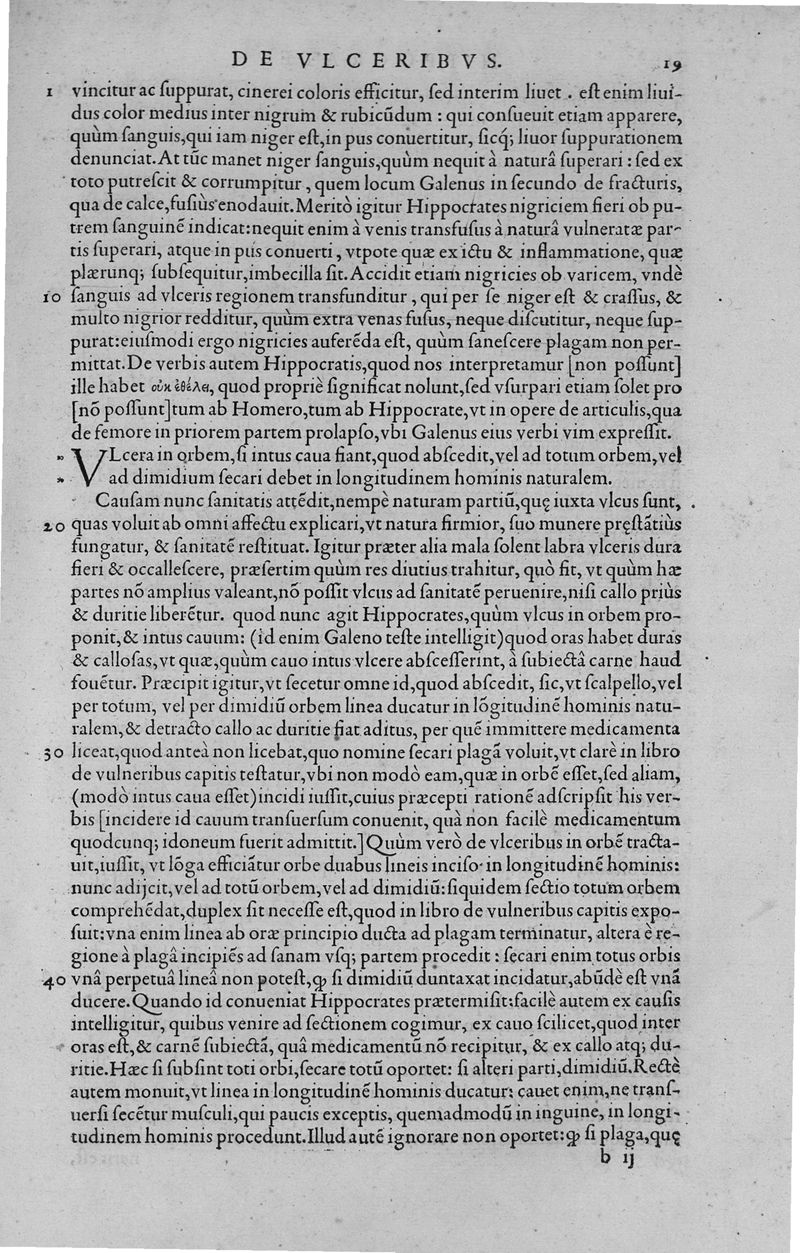 DE VLCERIBVS. 19
1 vincitur ac ſuppurat, cinerei coloris efficitur, ſed interim liuet . eſt enim liui-
dus color medius inter nigrum & rubicūdum : qui conſueuit etiam apparere,
quùm ſanguis,qui iam niger eſt,in pus conuertitur, ſicq́; liuor ſuppurationem
denunciat.At tūc manet niger ſanguis,quùm nequit à naturâ ſuperari : ſed ex
toto putreſcit & corrumpitur , quem locum Galenus in ſecundo de fracturis,
qua de calce,fuſiùs enodauit.Meritò igitur Hippocrates nigriciem fieri ob pu-
trem ſanguinē indicat:nequit enim à venis transfuſus à naturâ vulneratæ par-
tis ſuperari, atque in pus conuerti , vtpote quæ ex ictu & inflammatione, quæ
plærunq; ſubſequitur,imbecilla ſit.Accidit etiam nigricies ob varicem, vndè
10 ſanguis ad vlceris regionem transfunditur , qui per ſe niger eſt & craſſus, &
multo nigrior redditur, quùm extra venas fuſus, neque diſcutitur, neque ſup-
purat:eiuſmodi ergo nigricies auferēda eſt, quùm ſaneſcere plagam non per-
mittat.De verbis autem Hippocratis,quod nos interpretamur [non poſſunt]
ille habet οὐκ ἐθέλει, quod propriè ſignificat nolunt,ſed vſurpari etiam ſolet pro
[nō poſſunt]tum ab Homero,tum ab Hippocrate,vt in opere de articulis,qua
de femore in priorem partem prolapſo,vbi Galenus eius verbi vim expreſſit.
„ VLcera in orbem,ſi intus caua fiant,quod abſcedit,vel ad totum orbem,vel
„ ad dimidium ſecari debet in longitudinem hominis naturalem.
Cauſam nunc ſanitatis attēdit,nempè naturam partiū,quę iuxta vlcus ſunt,
20 quas voluit ab omni affectu explicari,vt natura firmior, ſuo munere pręſtātiùs
fungatur, & ſanitatē reſtituat. Igitur præter alia mala ſolent labra vlceris dura
fieri & occalleſcere, præſertim quùm res diutius trahitur, quò fit, vt quùm hæ
partes nō amplius valeant,nō poſſit vlcus ad ſanitatē peruenire,niſi callo priùs
& duritie liberētur. quod nunc agit Hippocrates,quùm vlcus in orbem pro-
ponit,& intus cauum: (id enim Galeno teſte intelligit)quod oras habet duras
& calloſas,vt quæ,quùm cauo intus vlcere abſceſſerint, à ſubiectâ carne haud
fouētur. Præcipit igitur,vt ſecetur omne id,quod abſcedit, ſic,vt ſcalpello,vel
per totum, vel per dimidiū orbem linea ducatur in lōgitudinē hominis natu-
ralem,& detracto callo ac duritie fiat aditus, per quē immittere medicamenta
30 liceat,quod anteà non licebat,quo nomine ſecari plagā voluit,vt clarè in libro
de vulneribus capitis teſtatur,vbi non modò eam,quæ in orbē eſſet,ſed aliam,
(modò intus caua eſſet)incidi iuſſit,cuius præcepti rationē adſcripſit his ver-
bis [incidere id cauum tranſuerſum conuenit, quà non facilè medicamentum
quodcunq; idoneum fuerit admittit.]Quùm verò de vlceribus in orbē tracta-
uit,iuſſit, vt lōga efficiātur orbe duabus lineis inciſo in longitudinē hominis:
nunc adijcit,vel ad totū orbem,vel ad dimidiū:ſiquidem ſectio totum orbem
comprehēdat,duplex ſit neceſſe eſt,quod in libro de vulneribus capitis expo-
ſuit:vna enim linea ab oræ principio ducta ad plagam terminatur, altera è re-
gione à plagâ incipiēs ad ſanam vſq; partem procedit : ſecari enim totus orbis
40 vnâ perpetuâ lineâ non poteſt,ꝙ ſi dimidiū duntaxat incidatur,abūdè eſt vnā
ducere.Quando id conueniat Hippocrates prætermiſit:facilè autem ex cauſis
intelligitur, quibus venire ad ſectionem cogimur, ex cauo ſcilicet,quod inter
oras eſt,& carnē ſubiectā, quâ medicamentū nō recipitur, & ex callo atq; du-
ritie.Hæc ſi ſubſint toti orbi,ſecare totū oportet: ſi alteri parti,dimidiū.Rectè
autem monuit,vt linea in longitudinē hominis ducatur: cauet enim,ne tranſ-
uerſi ſecētur muſculi,qui paucis exceptis, quemadmodū in inguine, in longi-
tudinem hominis procedunt.Illud autē ignorare non oportet:ꝙ ſi plaga,quę
b ij